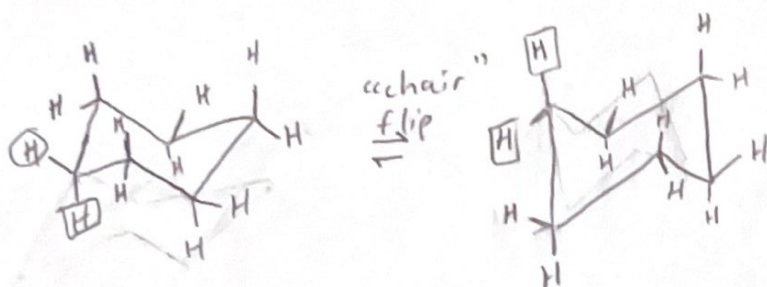 H
H
H
H
H
H
H
H
H
H
H
H
“chair”
flip
H
H
H
H
H
H
H
H
H
H
H
H